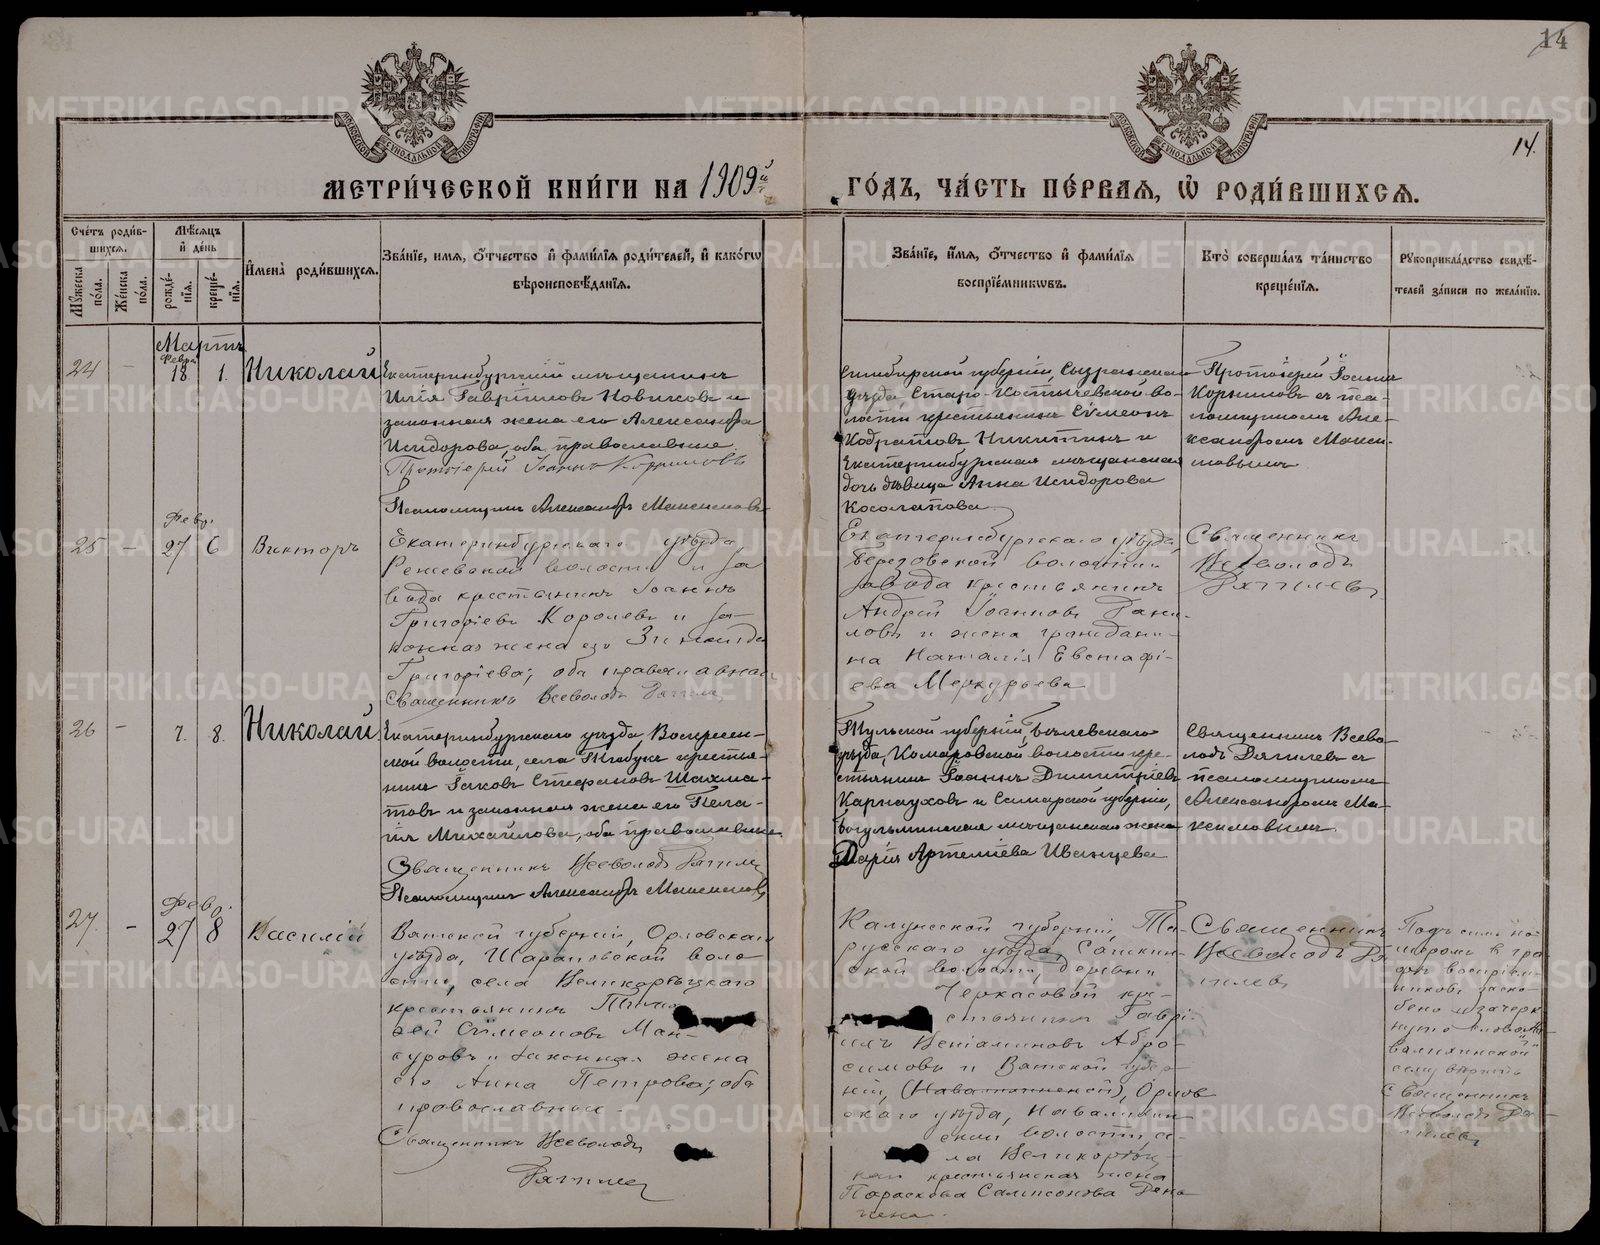 14
14.
МОСКОВСКОЙ СѴНОДАЛЬНОЙ ТИПОГРАФІИ
МОСКОВСКОЙ СѴНОДАЛЬНОЙ ТИПОГРАФІИ
МЕТРИ́ЧЕСКОЙ КНИ́ГИ НА 1909й
ГО́ДЪ, ЧА́СТЬ ПЕ́РВАЯ, Ѡ҆ РОДИ́ВШИХСЯ.
Сче́тъ роди́в-
шихся.
Му́жеска по́ла.
Же́нска по́ла.
Мѣ́сяцъ
и҆ де́нь
рожде́-
нїя.
креще́-
нїя.
И҆мена̀ роди́вшихся.
Зва́нїе, и́мя, ѻ҆́тчество и҆ фами́лїя роди́телей, и҆ како́гѡ
вѣроисповѣ́данїя.
Зва́нїе, и҆́мя, ѻ҆́тчество и҆ фами́лїя
воспрїе́мникѡвъ.
Кто̀ соверша́лъ та́инство
креще́нїя.
Рꙋкоприкла́дство свидѣ́-
телей за́писи по жела́нїю.
Мартъ
24 - Февр. 18. 1. Николай
Екатеринбургскій мѣщанинъ
Илія Гавріиловъ Новиковъ и
законная жена его Александра
Исидорова, оба православные.
Протоіерей Іоаннъ Корниловъ
Псаломщикъ Александръ Максимовъ
Симбирской губерніи, Сызранскаго
уѣзда, Старо-Костычевской во-
лости крестьянинъ Сѵмеонъ
Кодратовъ Никитинъ и
Екатеринбургская мѣщанская
дочь дѣвица Анна Исидорова
Косолапова
Протоіерей Іоаннъ
Корниловъ съ пса-
ломщикомъ Але-
ксандромъ Макси-
мовымъ
25 - Февр. 27 6 Викторъ
Екатеринбургскаго уѣзда,
Режевской волости и за-
вода крестьянинъ Іоаннъ
Григоріевъ Королевъ и за-
конная жена его Зинаида
Григоріева; оба православные
Священникъ Всеволодъ
Екатеринбургскаго уѣзда,
Березовской волости и
завода крестьянинъ
Андрей Іоанновъ
и жена граждани-
на Наталія Евстафі-
ева Меркурьева
Священникъ
Всеволодъ
26 - 7. 8. Николай
Екатеринбургскаго уѣзда, Воскресен-
ской волости, села крестья-
нинъ Іаковъ Стефановъ Шахма-
товъ и законная жена его Пела-
гія Михайлова, оба православные
Священникъ Всеволодъ
Псаломщикъ Александръ Максимовъ
Тульской губерніи, Бѣлевскаго
уѣзда, Комаровской волости кре-
стьянинъ Іоаннъ Димитріевъ
Карнауховъ и Самарской губерніи,
Бугульминская мѣщанская жена
Дарія Артеміева Иванцева
Священникъ Всево-
лодъ съ
псаломщикомъ
Александромъ Ма-
ксимовымъ.
27. - Февр. 27 8 Василій
Вятской губерніи, Орловскаго
уѣзда, Шарановской воло-
сти, села Великорѣцкаго
крестьянинъ Тимо-
ѳей Сѵмеоновъ Ман-
суровъ и законная жена
его Анна Петрова; оба
православные.
Священникъ Всеволодъ
Калужской губерніи, Та-
русскаго уѣзда, Сашкин-
ской волости, деревни
Черкасовой кре-
стьянинъ Гаврі-
илъ Веніаминовъ Абро-
симовъ и Вятской губер-
ніи, Орлов-
скаго уѣзда,
ской волости се-
ла Великорѣц-
каго крестьянская жена
Параскева Сампсонова
Священникъ
Всеволодъ
Подъ симъ но-
меромъ въ гра-
фѣ воспріем-
никовъ заско-
бено и зачерк-
нуто слово
сему вѣрить
Священникъ
Всеволодъ